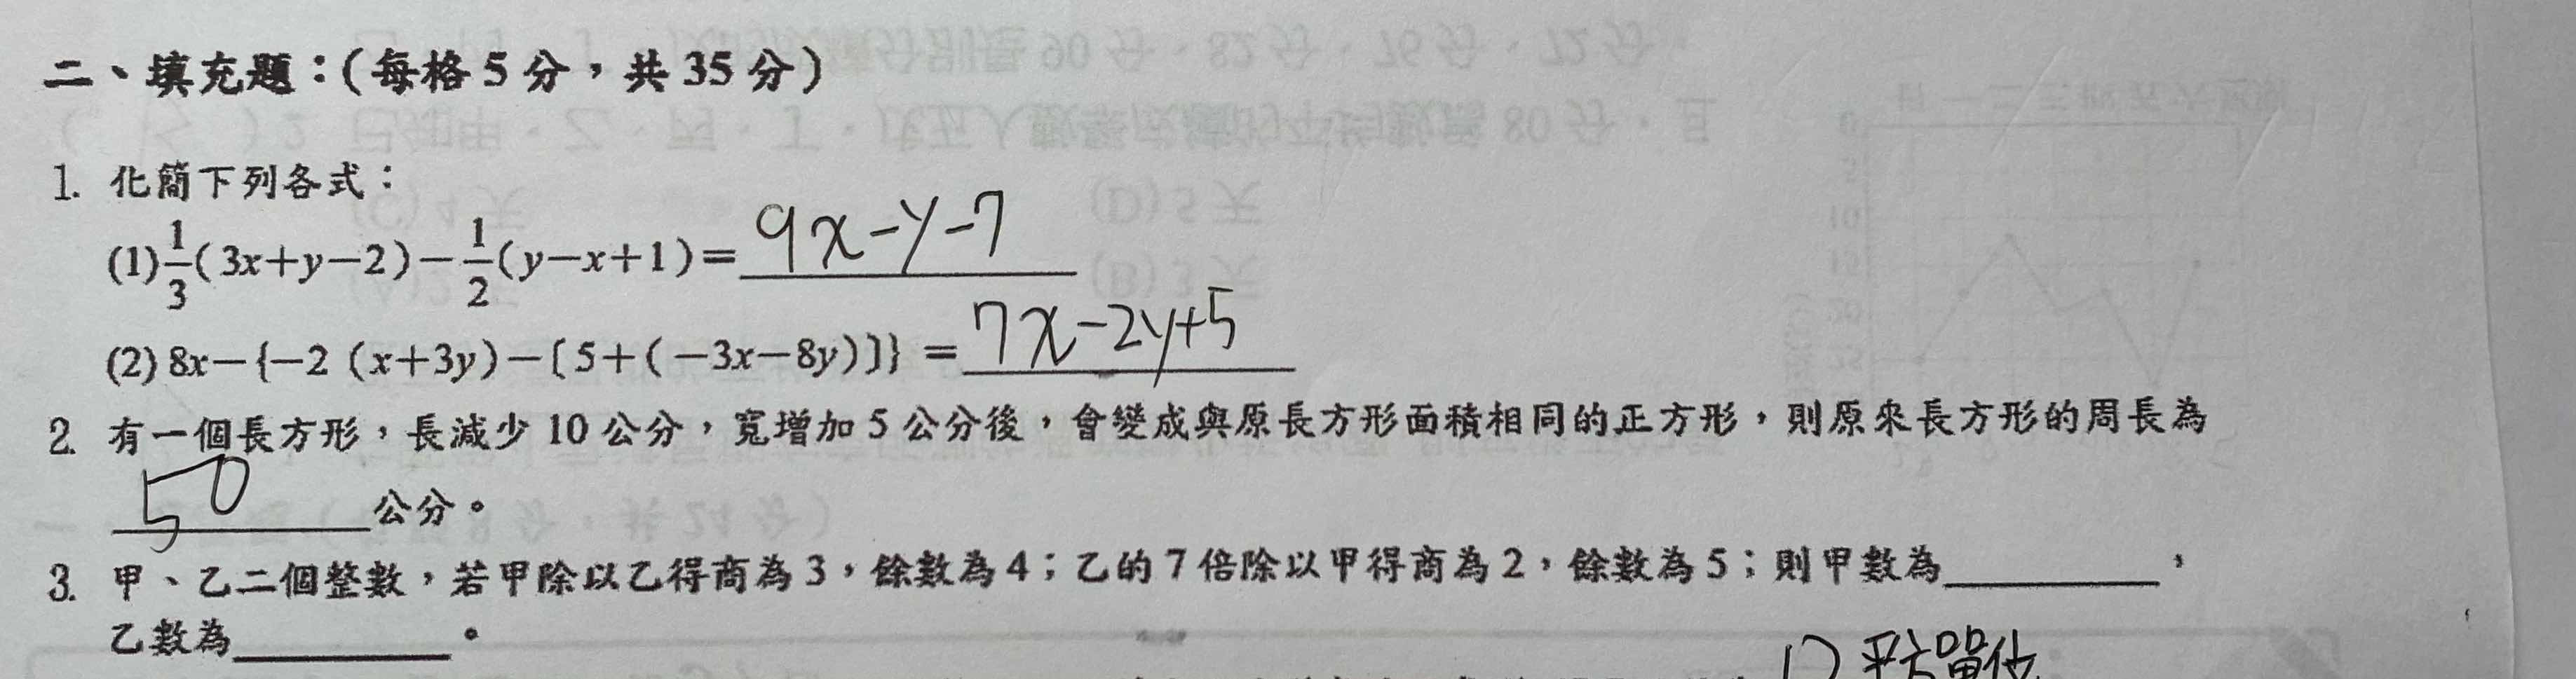 二、填充題：(每格5分，共35分)
1. 化簡下列各式：
(1) 1/3(3x+y−2)−1/2(y−x+1)=9x−y−7
(2) 8x−{−2(x+3y)−〔5+(−3x−8y)〕}=7x−2y+5
2. 有一個長方形，長減少10公分，寬增加5公分後，會變成與原長方形面積相同的正方形，則原來長方形的周長為
50公分。
3. 甲、乙二個整數，若甲除以乙得商為3，餘數為4；乙的7倍除以甲得商為2，餘數為5；則甲數為________，
乙數為________。
平方單位